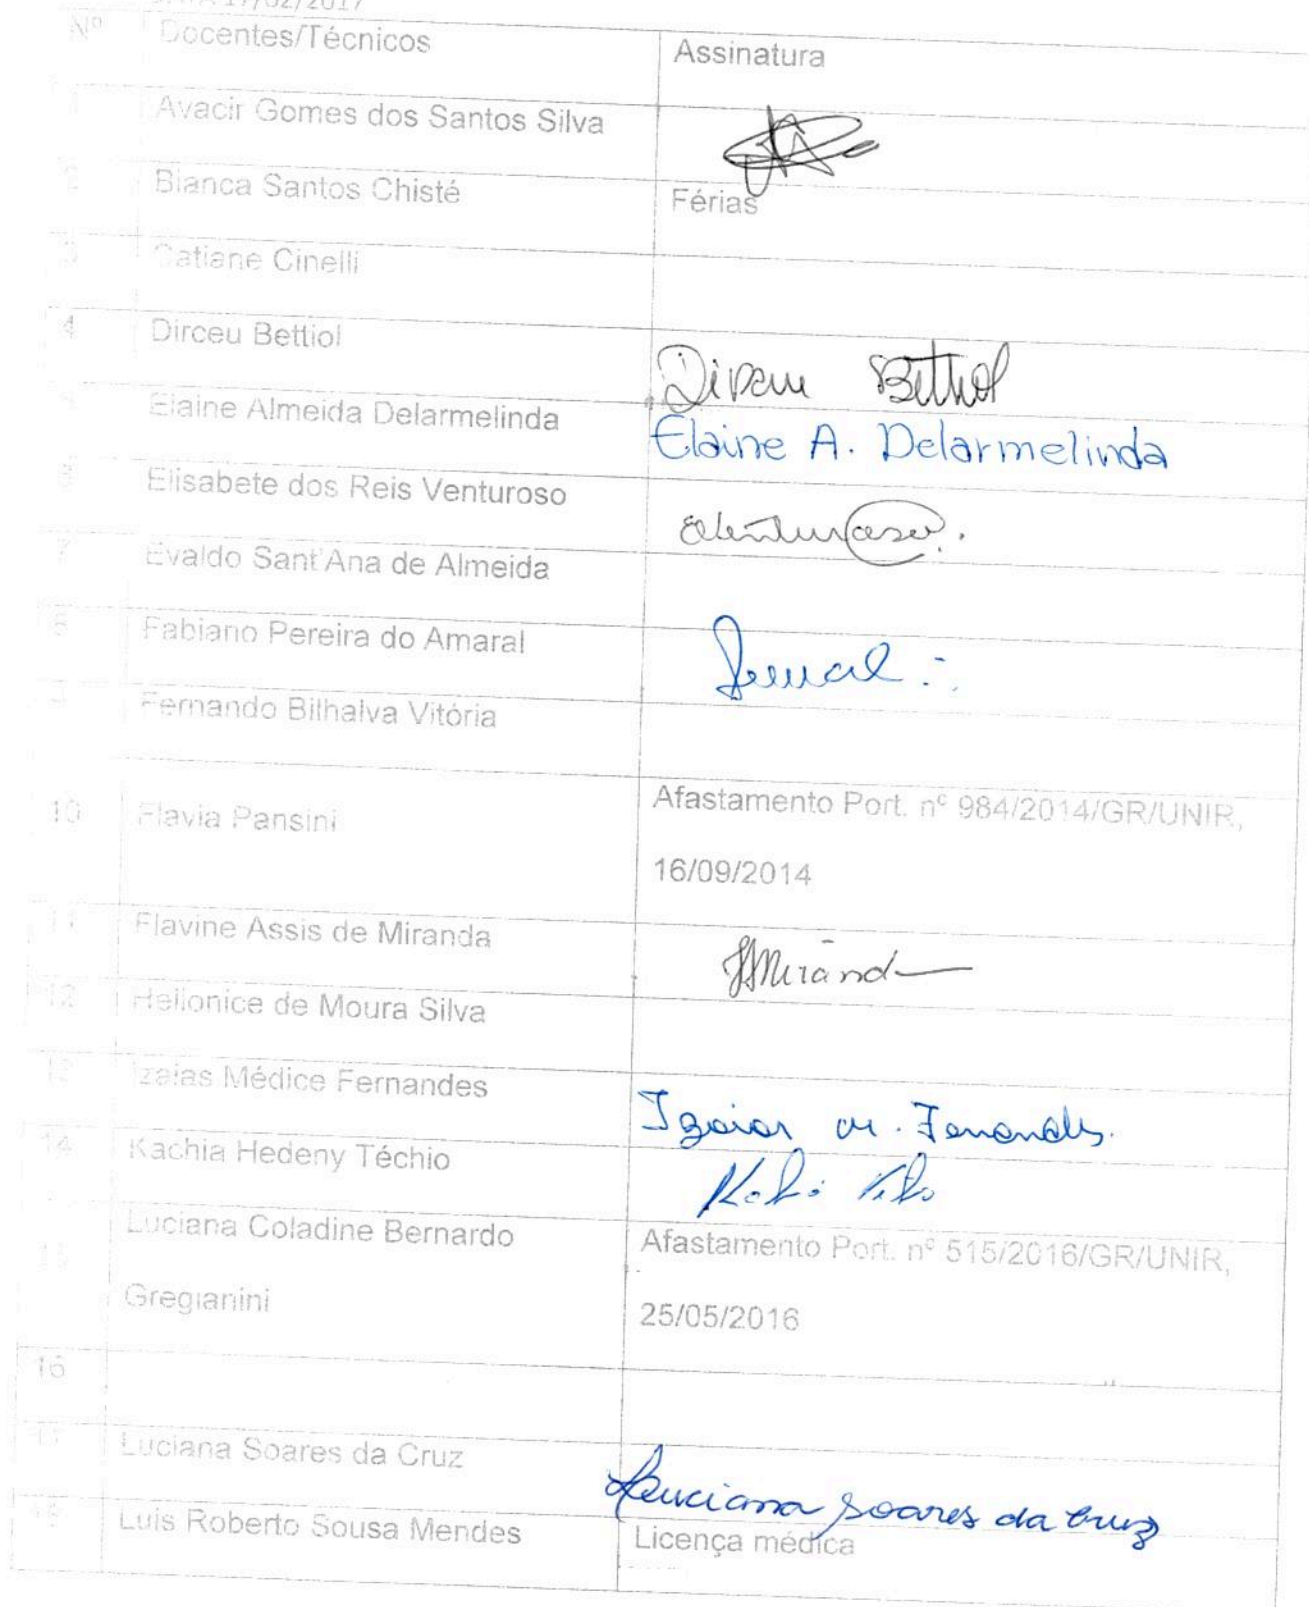 17/02/2017
Nº Docentes/Técnicos Assinatura
Avacir Gomes dos Santos Silva
2 Bianca Santos Chisté Férias
3 Catiane Cinelli
4 Dirceu Bettiol Dirceu Bettiol
Elaine Almeida Delarmelinda Elaine A. Delarmelinda
6 Elisabete dos Reis Venturoso
7 Evaldo Sant'Ana de Almeida
8 Fabiano Pereira do Amaral
Fernando Bilhalva Vitória
10 Flavia Pansini Afastamento Port. nº 984/2014/GR/UNIR,
16/09/2014
11 Flavine Assis de Miranda
12 Helionice de Moura Silva
13 Izaias Médice Fernandes Izaias M. Fernandes.
14 Kachia Hedeny Téchio
15 Luciana Coladine Bernardo Afastamento Port. nº 515/2016/GR/UNIR,
Gregianini 25/05/2016
16
17 Luciana Soares da Cruz Luciana Soares da Cruz
18 Luis Roberto Sousa Mendes Licença médica